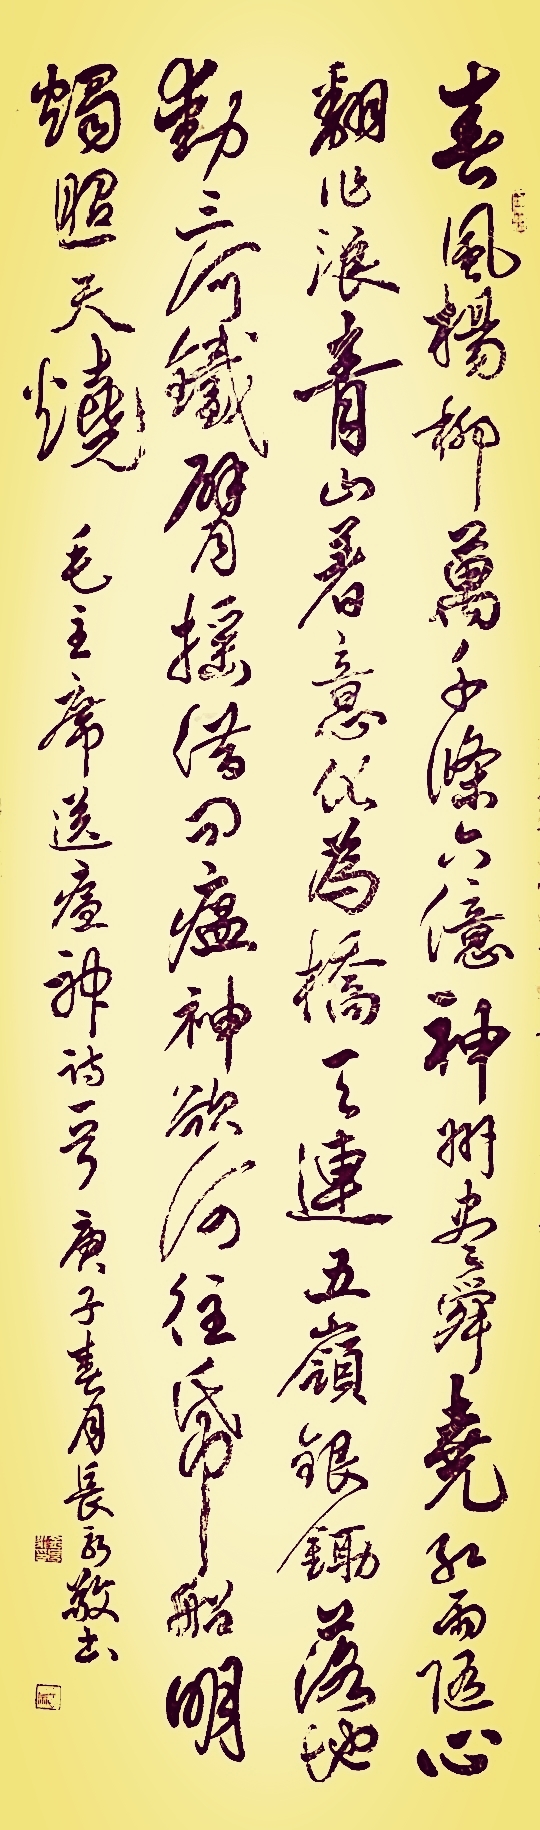 春風楊柳萬千條六億神州盡舜堯紅雨隨心
翻作浪青山着意化為橋天連五嶺銀鋤落地
動三河鐵臂摇借问瘟神欲何往纸船明
燭照天燒
毛主席送瘟神诗一首 庚子春月長永敬书